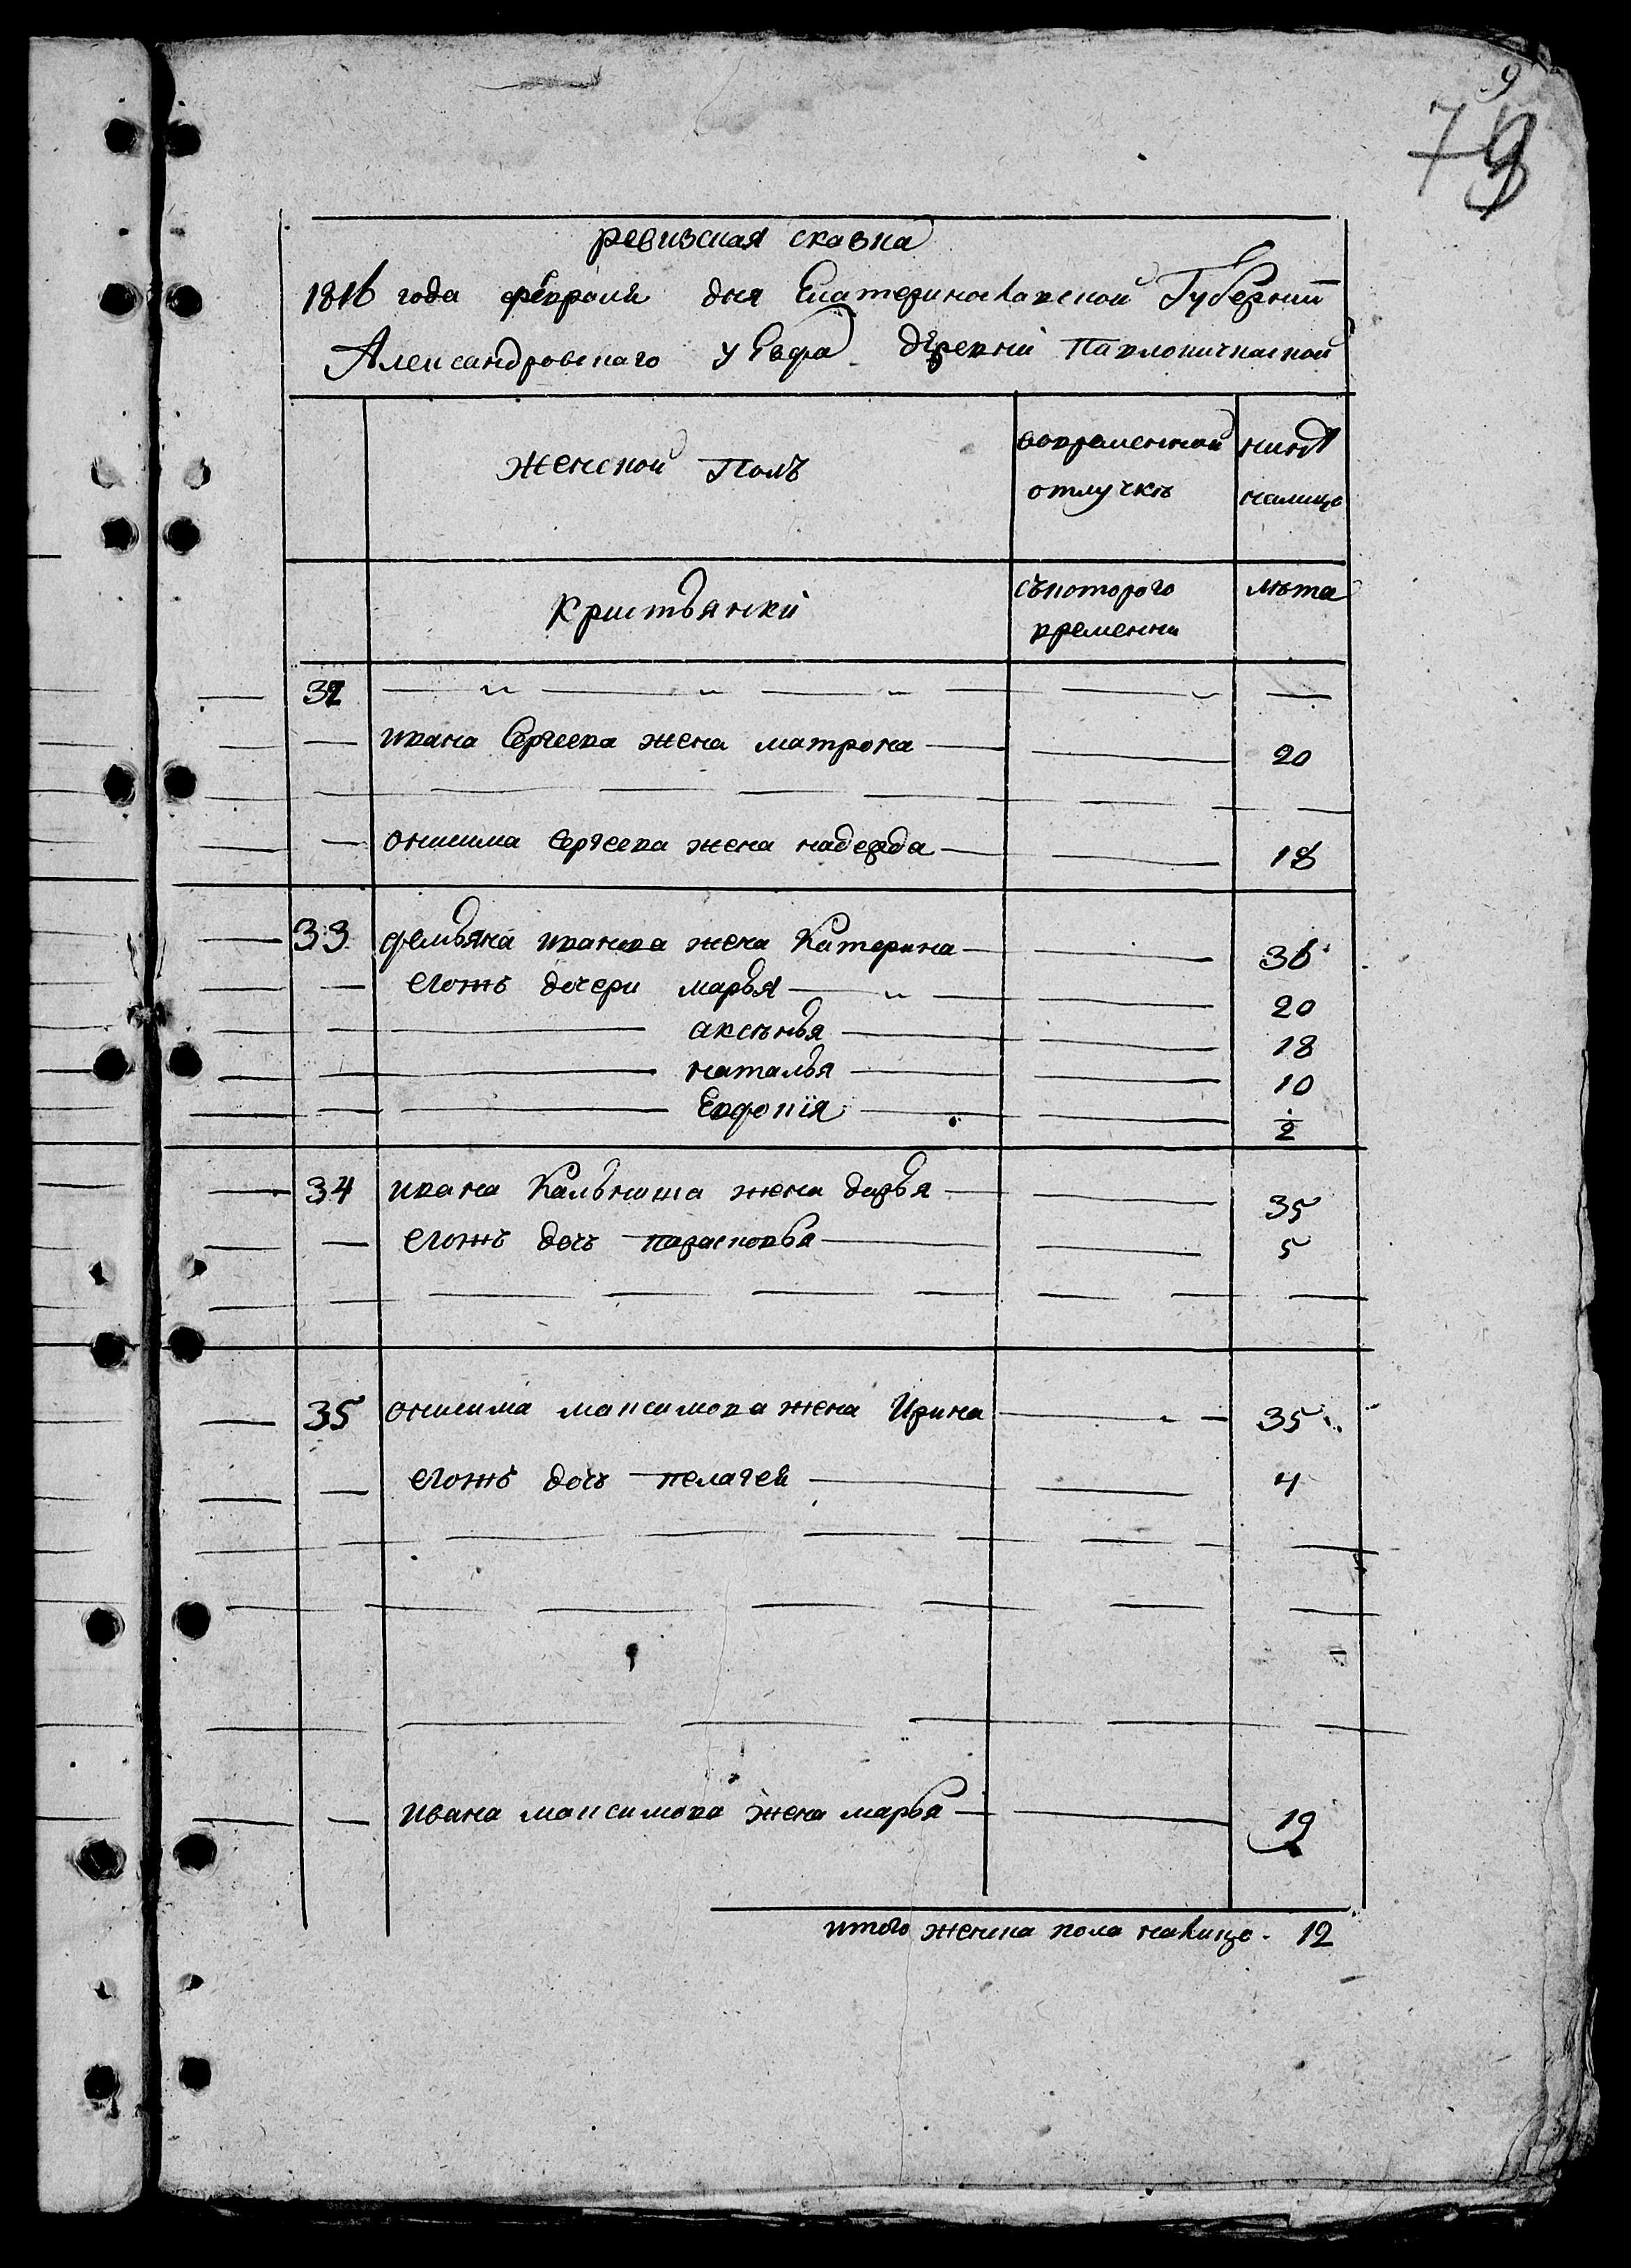 9
79
ревизская сказка
1816 года февраля дня Екатеринославской Губернии
Александровского уезда деревни Павлокичкаской
женской Полъ
вовременной отлучкъ
нынѣ налицо
Кристьянки
съкоторого времянни
лѣта
32
ивана Сергеева жена матрона 20
онисима Сергеева жена надежда 18
33 демьяна иванова жена Катерина 36
егожъ дочери марья 20
аксѣнья 18
наталья 10
Евдокія 1/2
34 ивана Кальниша жена дарья 35
егожъ дочь парасковья 5
35 онисима максимова жена Ирина 35
егожъ дочь пелагея 4
ивана максимова жена марья 19
итого женска пола налицо. 12